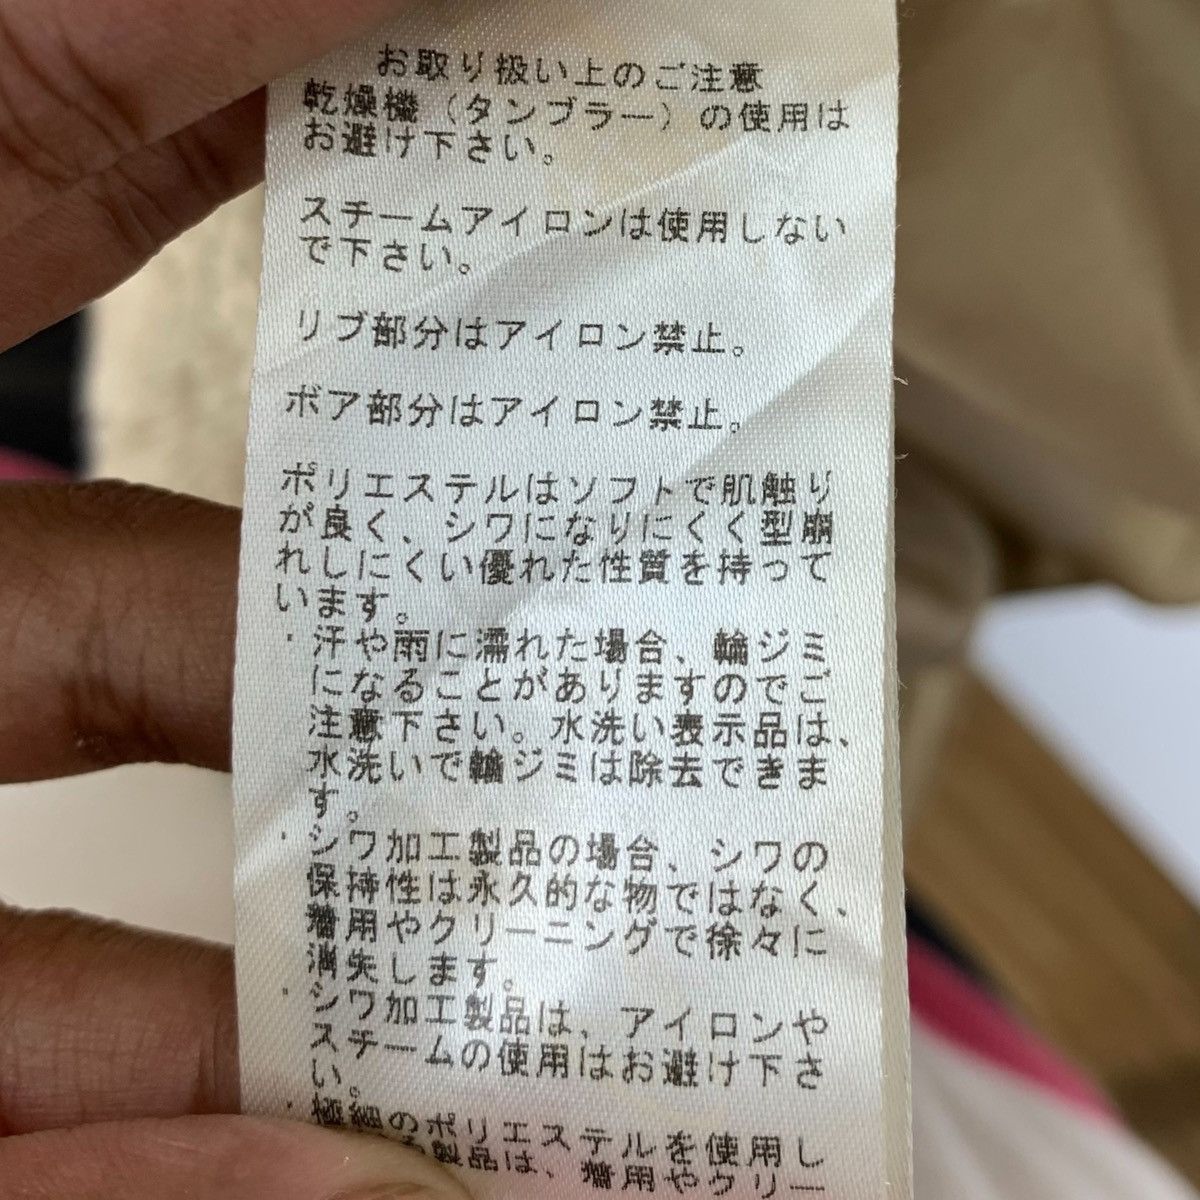 お取り扱い上のご注意
乾燥機（タンブラー）の使用は
お避け下さい。
スチームアイロンは使用しない
で下さい。
リブ部分はアイロン禁止。
ボア部分はアイロン禁止。
ポリエステルはソフトで肌触り
が良く、シワになりにくく型崩
れしにくい優れた性質を持って
います。
・汗や雨に濡れた場合、輪ジミ
になることがありますのでご
注意下さい。水洗い表示品は、
水洗いで輪ジミは除去できま
す。
・シワ加工製品の場合、シワの
保持性は永久的な物ではなく、
着用やクリーニングで徐々に
消失します。
・シワ加工製品は、アイロンや
スチームの使用はお避け下さ
い。
・極細のポリエステルを使用し
製品は、着用やクリー